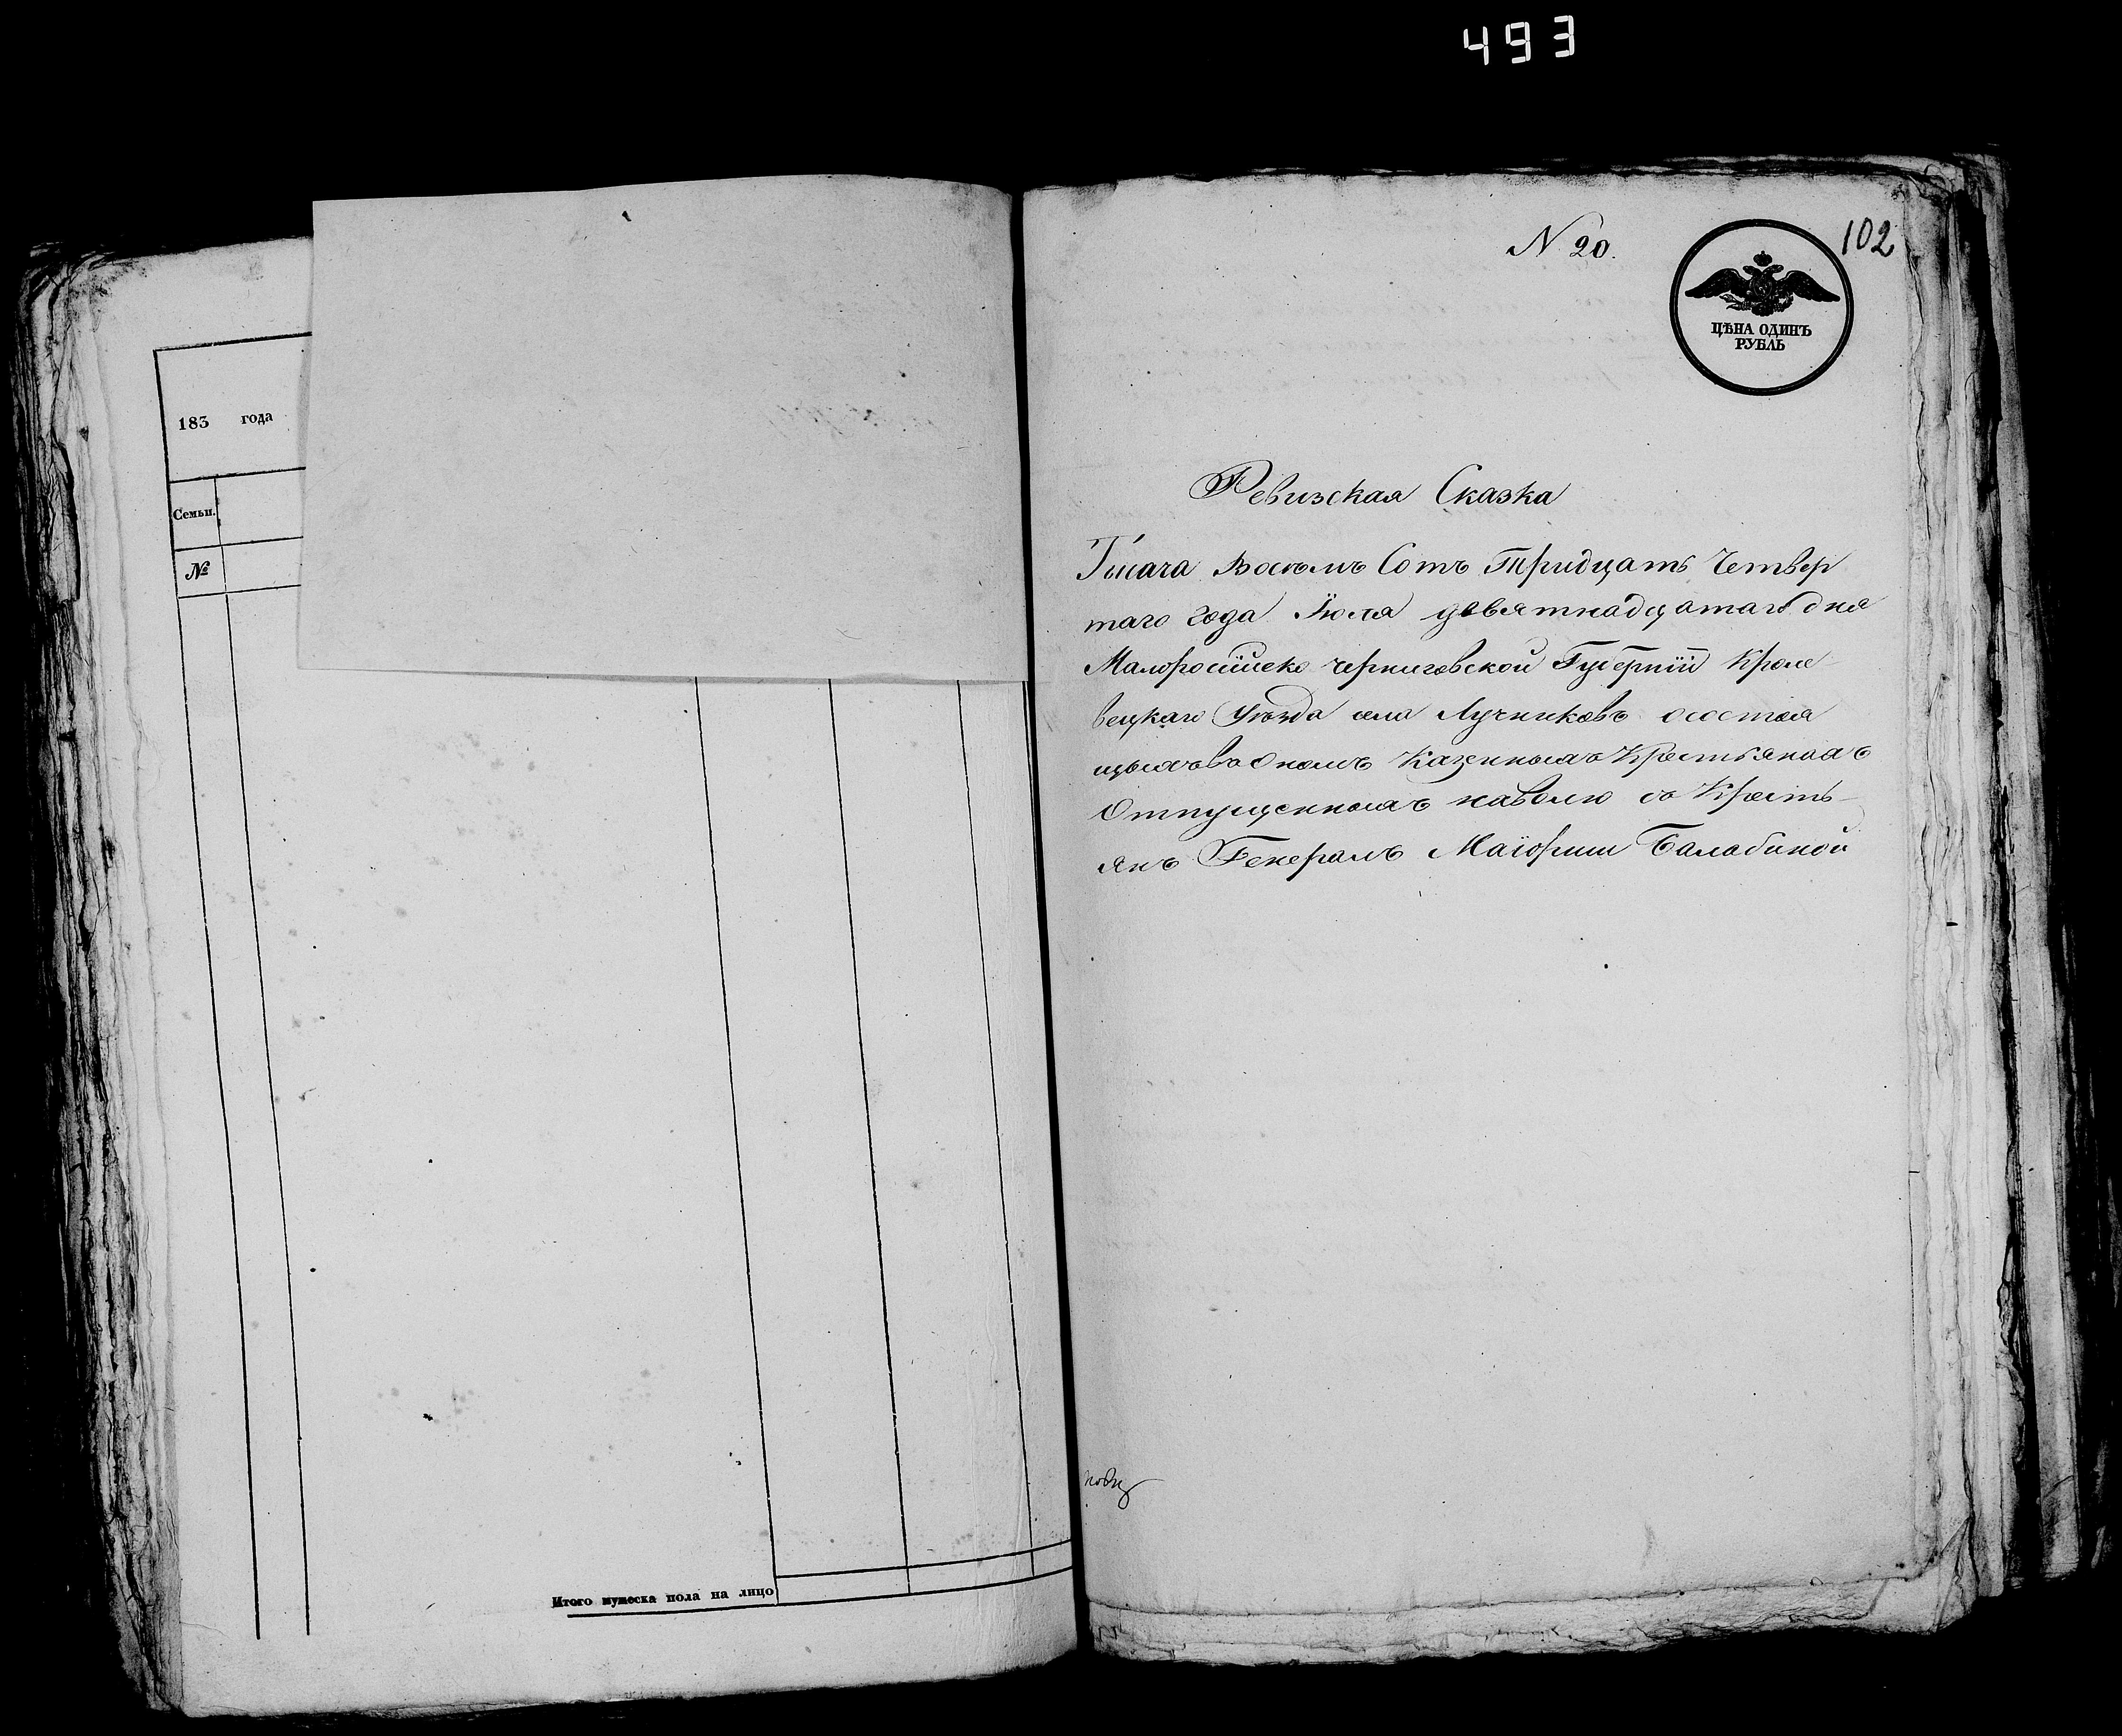 493
183 года
Семьи.
№
Итого мужеска пола на лицо
N 20.
102
ЦѢНА ОДИНЪ
РУБЛЬ
Ревизская Сказка
Тысяча Восемь Сотъ Тридцать Четвер
таго года Іюля девятнадцатаго дня
Малоросійско черниговской Губерніи Кроле
вецкаго Уѣзда села Лучниковъ осостоя
щихъ воономъ Казенныхъ Крестьянахъ
Отпущенныхъ наволю со Кресть-
янъ Генералъ Маіорши Балабиной